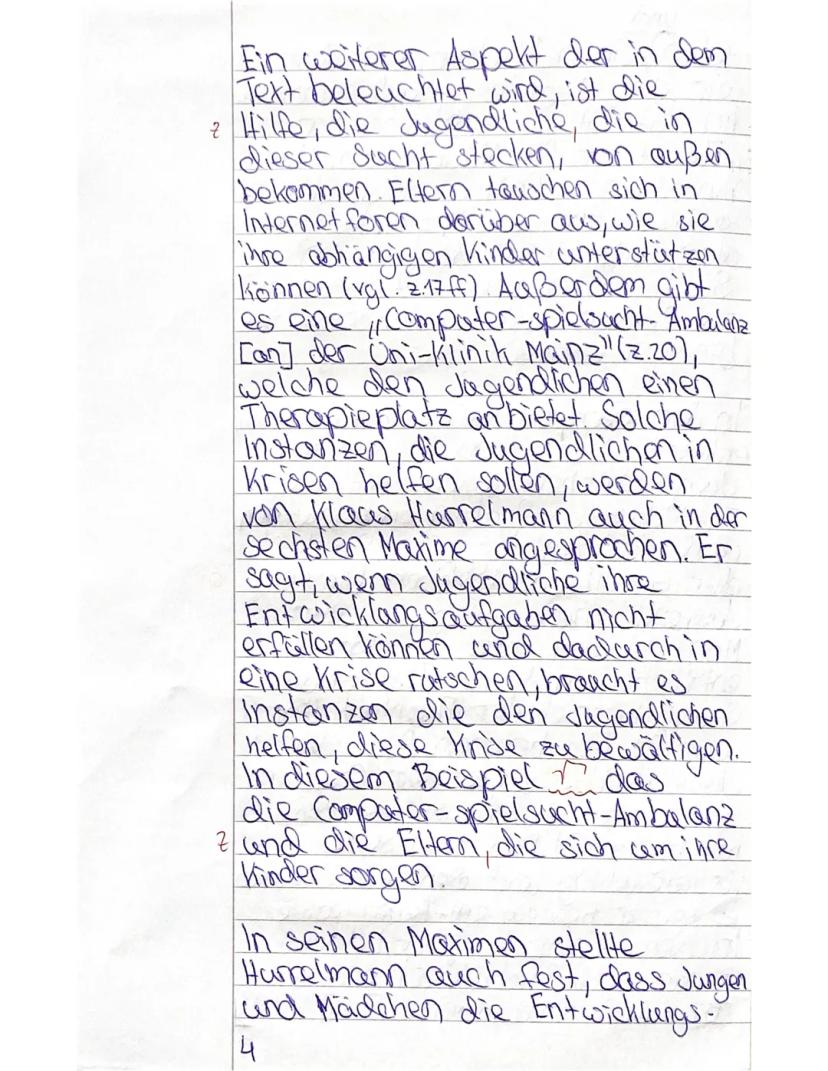 Ein weiterer Aspekt der in dem
Text beleuchtet wird, ist die
z Hilfe, die Jugendliche, die in
dieser Sucht stecken, von außen
bekommen. Eltern tauschen sich in
Internetforen darüber aus, wie sie
ihre abhängigen Kinder unterstützen
können (vgl. z.17ff). Außerdem gibt
es eine „Computer-spielsucht-Ambulanz
[an] der Uni-Klinik Mainz" (z.20),
welche den Jugendlichen einen
Therapieplatz anbietet. Solche
Instanzen, die Jugendlichen in
Krisen helfen sollen, werden
von Klaus Hurrelmann auch in der
sechsten Maxime angesprochen. Er
sagt, wenn Jugendliche ihre
Entwicklungsaufgaben nicht
erfüllen können und dadurch in
eine Krise rutschen, braucht es
Instanzen die den Jugendlichen
helfen, diese Krise zu bewältigen.
In diesem Beispiel das
die Computer-spielsucht-Ambulanz
z und die Eltern, die sich um ihre
Kinder sorgen.
In seinen Maximen stellte
Hurrelmann auch fest, dass Jungen
und Mädchen die Entwicklungs-
4